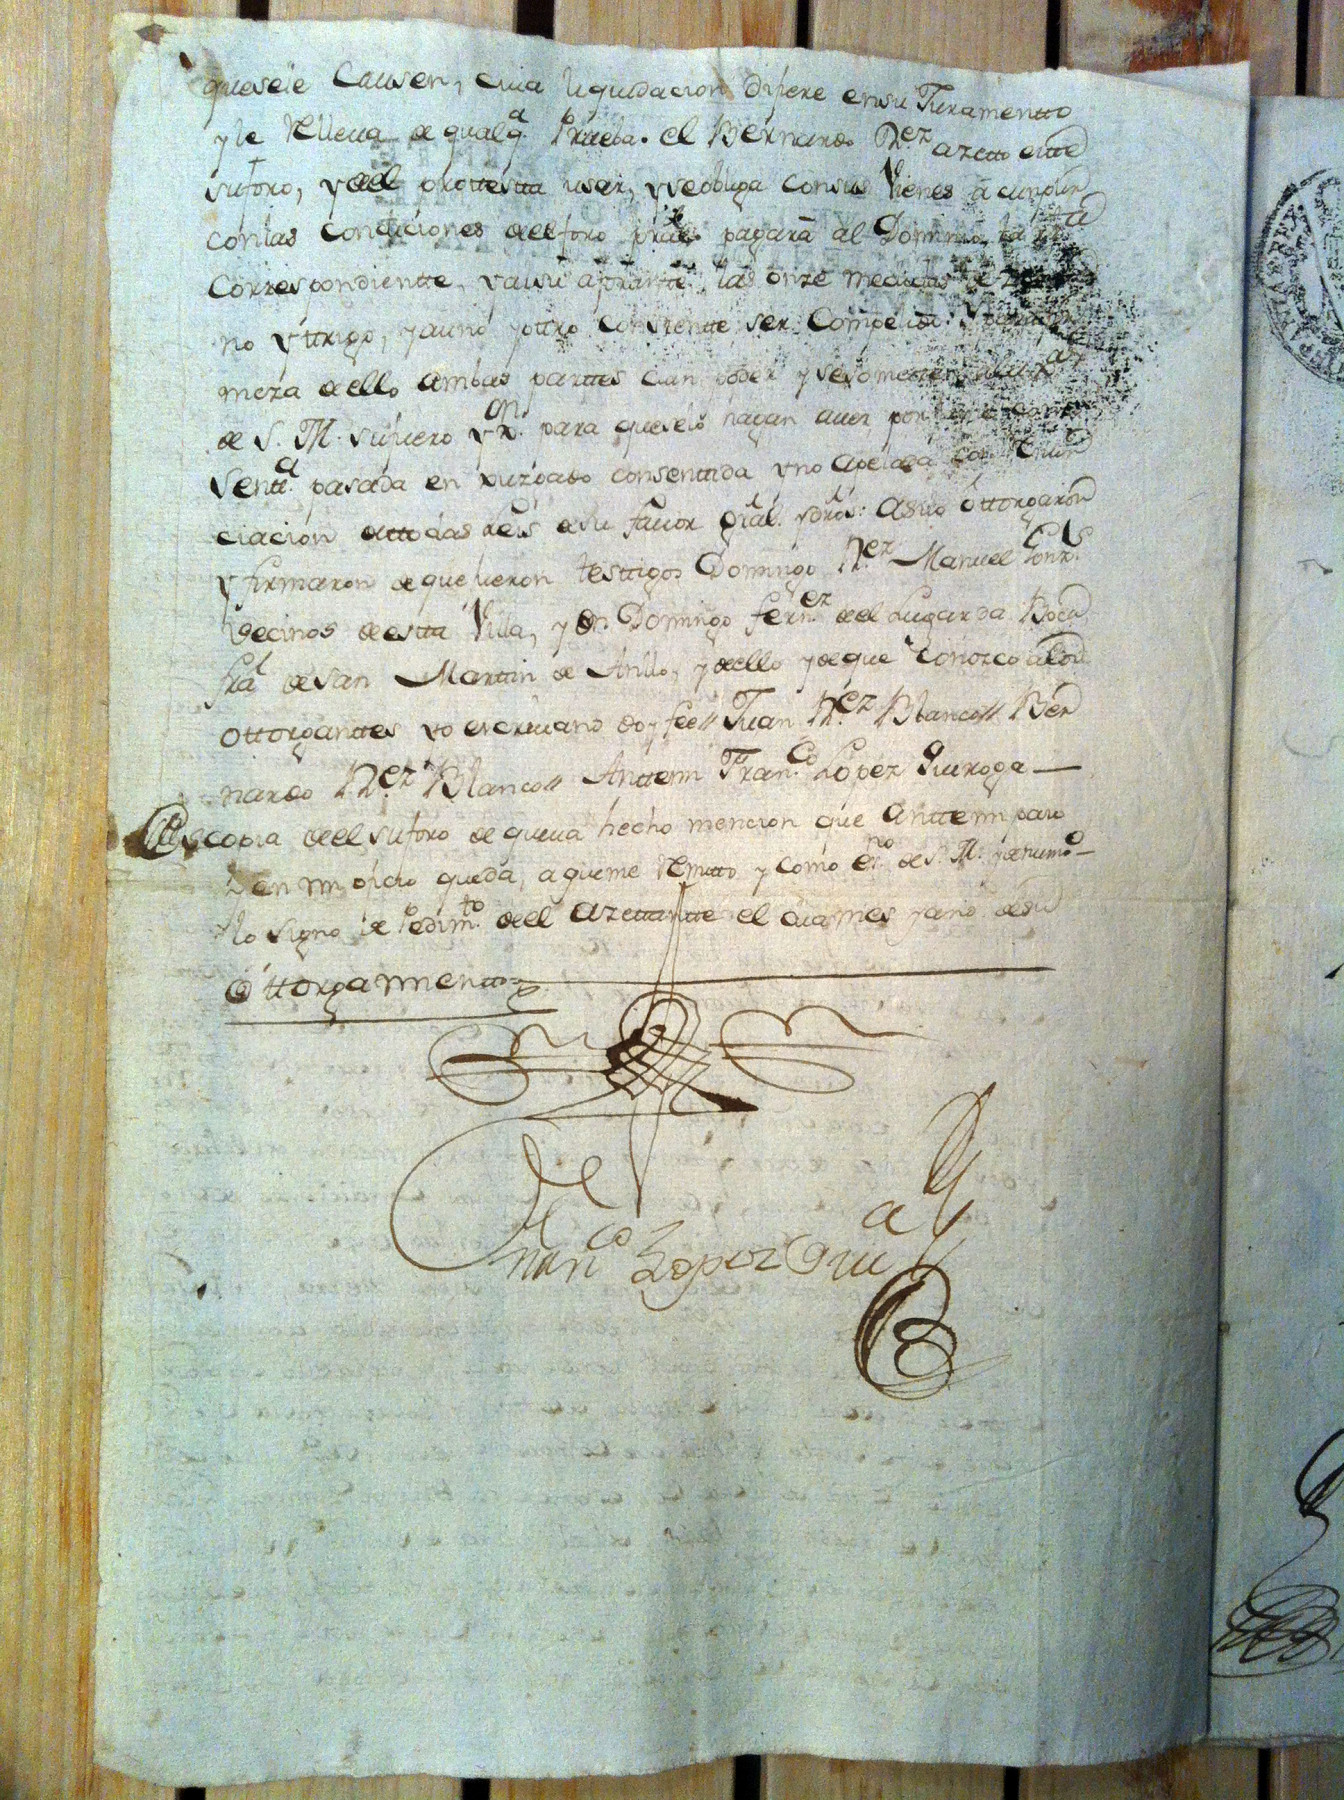 que sele Causen, cuia liquidacion difiere en su Juramentto
y le Relleua de qualq.a Prueba. el Bernardo Rez azetto estte
suforo, y deel prottestta usar, y se obliga consus Vienes á cunplir
conlas condiciones deelforo pral. pagará al Dominio, la
Correspondientte, y a su aforantte, las onze medidas
no y ttrigo, y a uno y ottro consientte ser Compelido:
meza de ello ambas parttes dan poder y se sometten
de S. M. su fuero para que selo hagan auer por
Sentt.a pasada en xuzgado consenttida y no apelada con rrenun
ciacion de ttodas leis de su fauor gral. y dros: asilo óttorgaron
y firmaron de que fueron testtigos Domingo R.ez Manuel Gonz.s
Vecinos de estta Villa, y Dn. Domingo fern.ez deel Lugar da Boca
fra de san Marttin de Anllo, y dello y de que conozco alos
ottorganttes yo escriuano doy fee// Juan R.ez Blanco// Ber
nardo R.ez Blanco// Anttemi Fran.co Lopez Quiroga —
Es copia deel suforo de queua hecho mencion que anttemi paso
y en mi oficio queda, a que me Remitto y como es.no de S. M. y de numo —
lo signo de Pedim.to deel azettantte el dia mes y año de su
óttorgamientto
Fran.co Lopez Quir.a